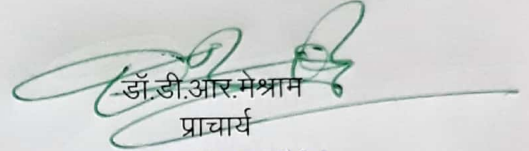 डॉ.डी.आर.मेश्राम
प्राचार्य